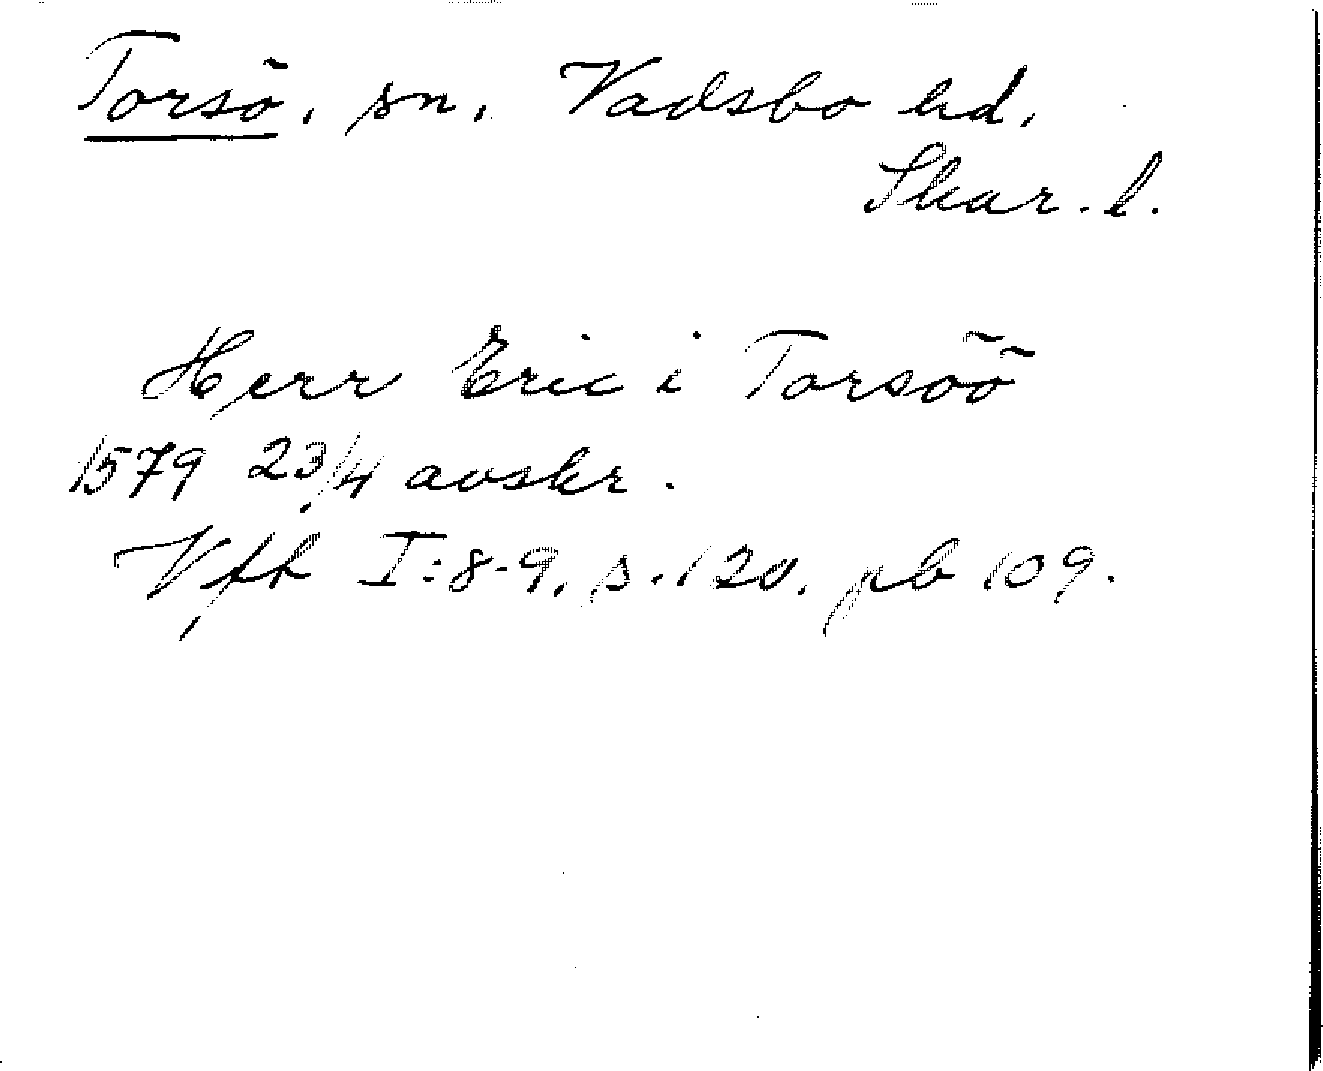 Torsö, sn, Vadsbo hd,
Skar. l.
Herr Eric i Torsöö
1579 23/4 avskr.
Vfh I:8-9, s. 120, pb 109.